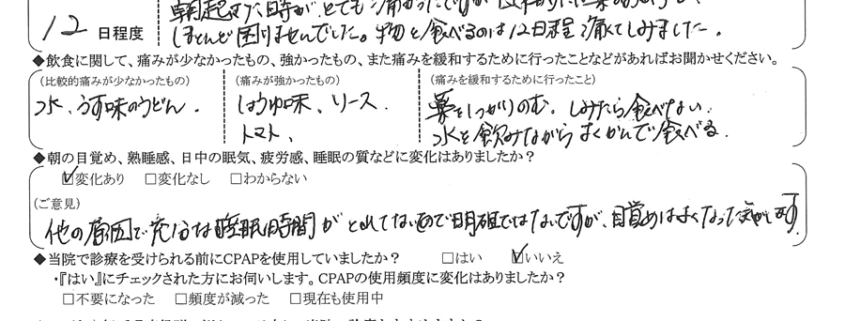 朝起きた時が、とても痛かったですが
12 日程度
ほとんど困りませんでした。物を食べるのは12日程痛くてしみました.
◆飲食に関して、痛みが少なかったもの、強かったもの、また痛みを緩和するために行ったことなどがあればお聞かせください。
(比較的痛みが少なかったもの) (痛みが強かったもの) (痛みを緩和するために行ったこと)
水、うす味のうどん. しょうゆ味、ソース. 薬をしっかりのむ. しみたら食べない.
トマト、 水を飲みながらよくかんで食べる.
◆朝の目覚め、熟睡感、日中の眠気、疲労感、睡眠の質などに変化はありましたか?
☑変化あり □変化なし □わからない
(ご意見)
他の原因で充分な睡眠時間がとれてないので明確ではないですが、目覚めはよくなった気がします
◆当院で診療を受けられる前にCPAPを使用していましたか? □はい ☑いいえ
・『はい』にチェックされた方にお伺いします。CPAPの使用頻度に変化はありましたか?
□不要になった □頻度が減った □現在も使用中